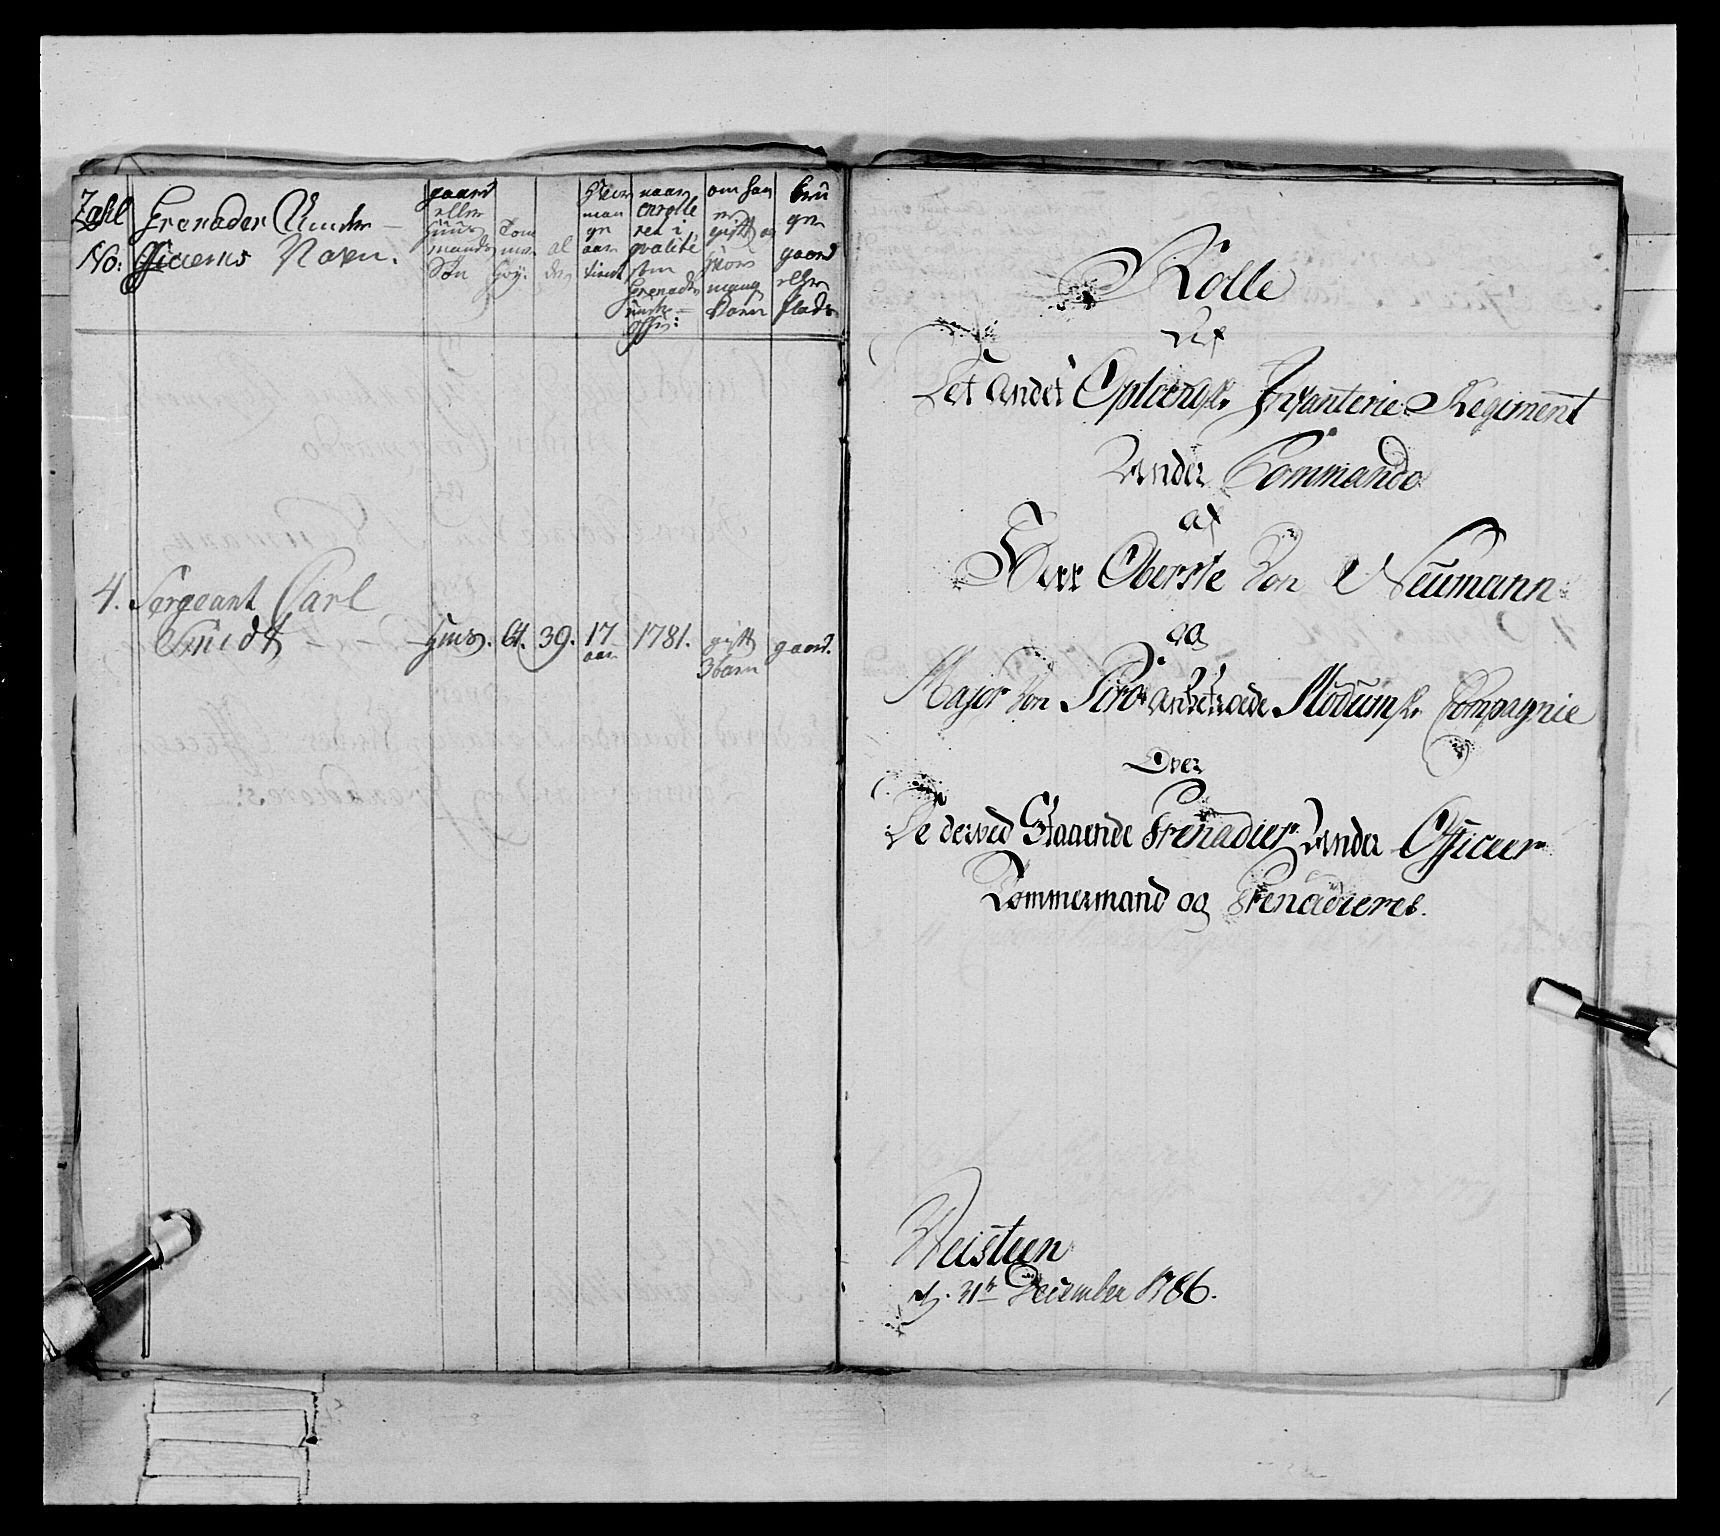 Zahl
No:
Grenader Under-
officerns Navn.
gaard
eller
huus
mands
Søn
Tom
mer
høy.
al
der
hvor
man
ge
aar
tient
naar
enrolle
ret i
qvalite
som
Grenader
under-
offic:
om han
er
gift og
hvor
mang
børn
bru
ger
gaard
eller
plads
4. Sergeant Carl
Smidt
huus. 61. 39. 17 aar 1781. gift 3 barn gaard.
Rolle
Af
Det Andet Oplandske Infanterie Regiment
Under Commando
af
Herr Oberste Von Neumann
og
Major Von anbetroede Modumske Compagnie
Over
De derved Staaende Grenadier Under Officeer
Tømmermand og Grenadieres.
Veisteen
d. 31te December 1786.